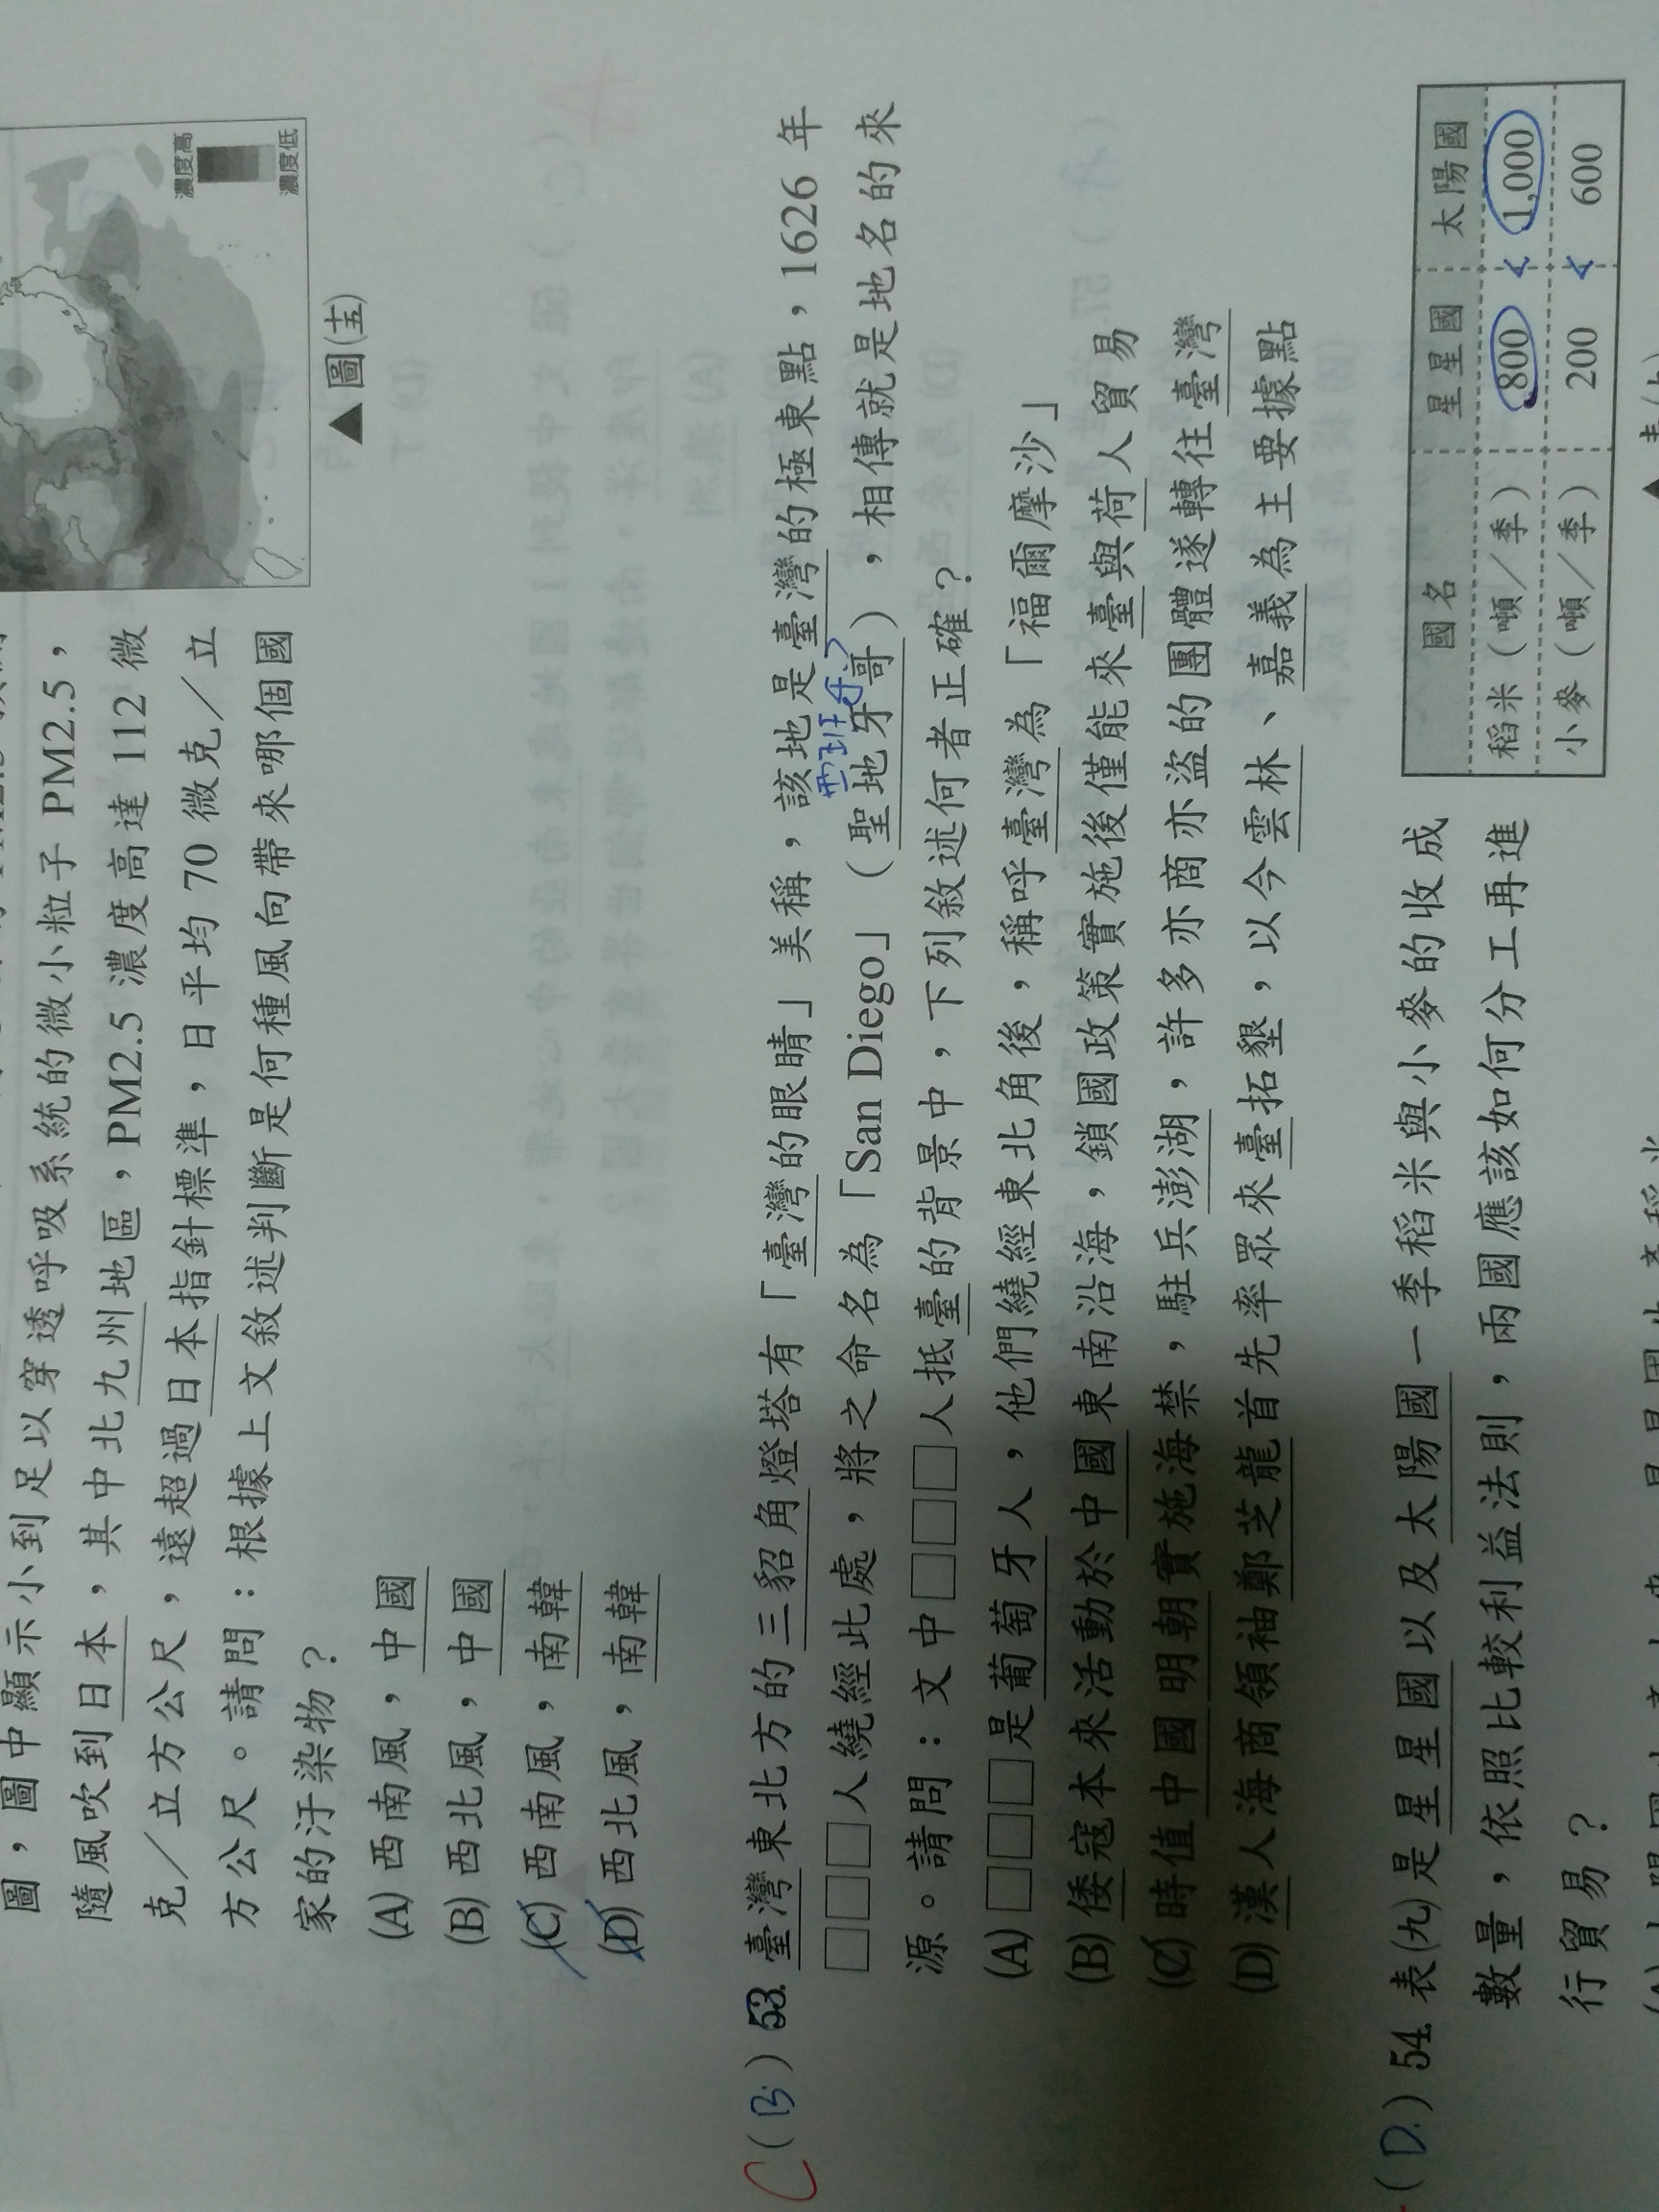 圖，圖中顯示小到足以穿透呼吸系統的微小粒子 PM2.5，
隨風吹到日本，其中北九州地區，PM2.5 濃度高達 112 微
克／立方公尺，遠超過日本指針標準，日平均 70 微克／立
方公尺。請問：根據上文敘述判斷是何種風向帶來哪個國
家的汙染物？
濃度高
濃度低
▲ 圖(十五)
(A) 西南風，中國
(B) 西北風，中國
(C) 西南風，南韓
(D) 西北風，南韓
C ( B ) 53. 臺灣東北方的三貂角燈塔有「臺灣的眼睛」美稱，該地是臺灣的極東點，1626 年
□□□人繞經此處，將之命名為「San Diego」（聖地牙哥），相傳就是地名的來
西班牙
源。請問：文中□□□人抵臺的背景中，下列敘述何者正確？
(A) □□□是葡萄牙人，他們繞經東北角後，稱呼臺灣為「福爾摩沙」
(B) 倭寇本來活動於中國東南沿海，鎖國政策實施後僅能來臺與荷人貿易
(C) 時值中國明朝實施海禁，駐兵澎湖，許多亦商亦盜的團體遂轉往臺灣
(D) 漢人海商領袖鄭芝龍首先率眾來臺拓墾，以今雲林、嘉義為主要據點
( D ) 54. 表(九)是星星國以及太陽國一季稻米與小麥的收成
數量，依照比較利益法則，兩國應該如何分工再進
行貿易？
國名 星星國 太陽國
稻米（噸／季） 800 < 1,000
小麥（噸／季） 200 < 600